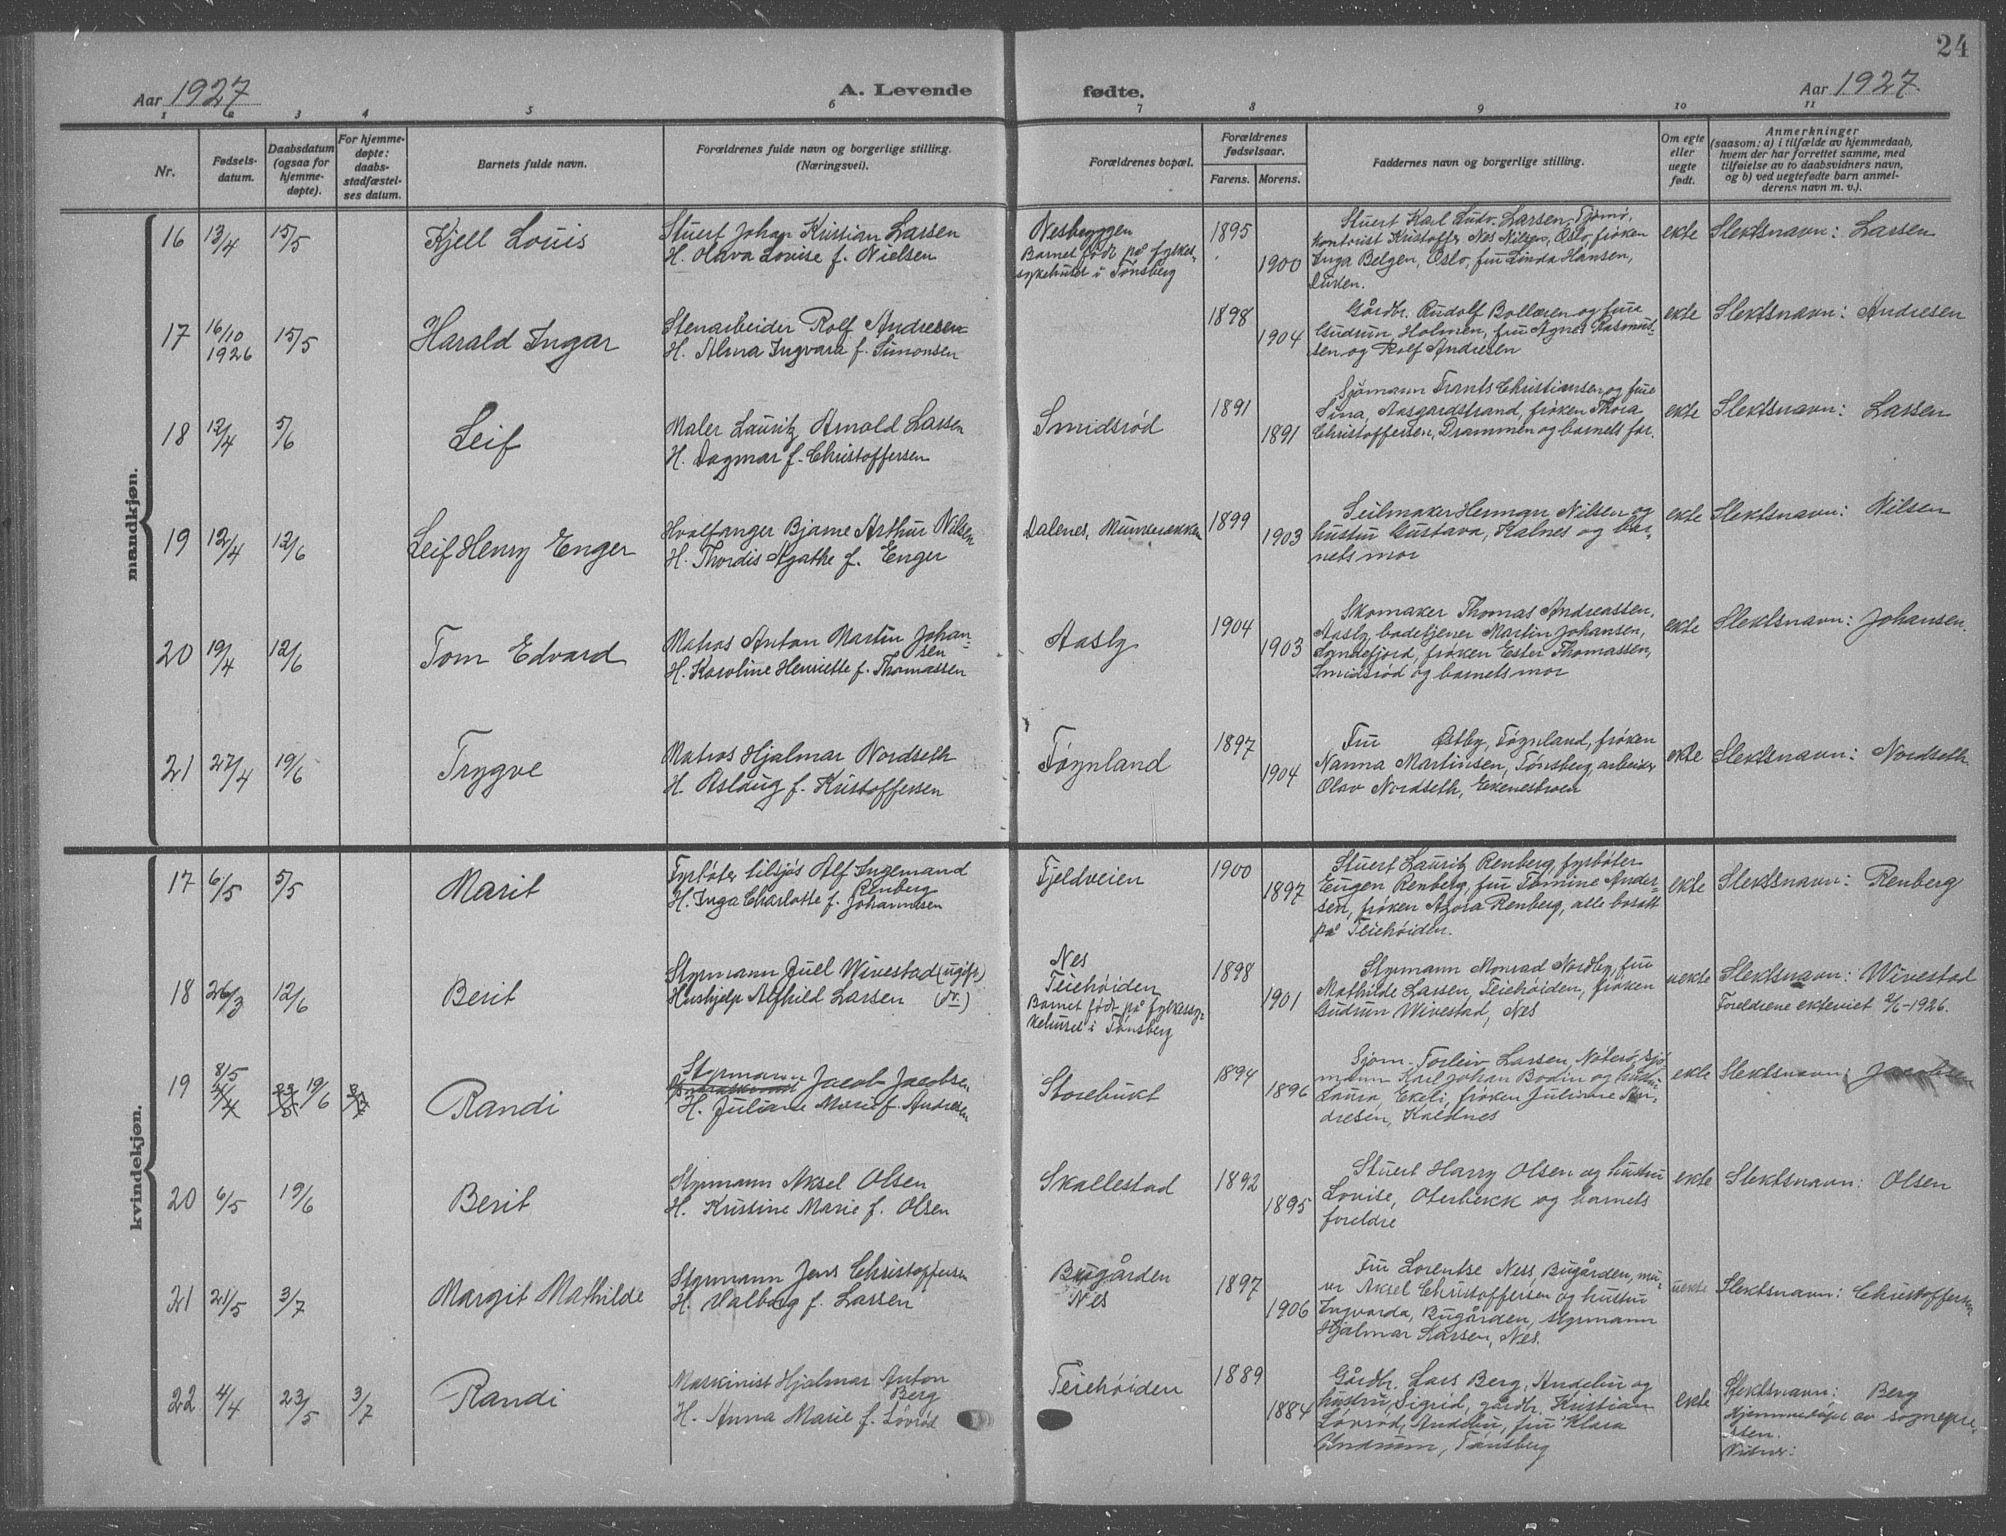 24
Aar 1927
A. Levende
fødte.
Aar 1927.
1 2 3 4 5 6 7 8 9 10 11
Nr.
Fødsels-
datum.
Daabsdatum
(ogsaa for
hjemme-
døpte).
For hjemme-
døpte:
daabs-
stadfæstel-
ses datum.
Barnets fulde navn.
Forældrenes fulde navn og borgerlige stilling.
(Næringsvei).
Forældrenes bopæl.
Forældrenes
fødselsaar.
Farens. Morens.
Faddernes navn og borgerlige stilling.
Om egte
eller
uegte
født.
Anmerkninger
(saasom: a) i tilfælde av hjemmedaab,
hvem der har forrettet samme, med
tilføielse av to daabsvidners navn,
og b) ved uegtefødte barn anmel-
derens navn m. v.).
mandkjøn.
16 13/4 15/5
Kjell Louis
Stuert Johan Kristian Larsen
H. Olava Lovise f. Nielsen
Nesbryggen
Barnet født på fylkes-
sykehuset i Tønsberg
1895
1900
Stuert Karl Ludv. Larsen, Tjømø,
kontorist Kristoffer Nes Nilsen, Oslo, frøken
Inga Belgen, Oslo, fru Linda Hansen,
ekte
Slektsnavn: Larsen
17 16/10
1926
15/5
Harald Ingar
Stenarbeider Rolf Andresen
H. Alma Ingvara f. Simonsen
1898
1904
Gårdbr. Rudolf Bollæren og frue
Gudrun, Holmen, fru Agnes Rasmus-
sen og Rolf Andresen
ekte
Slektsnavn: Andresen
18 12/4 5/6
Leif
Maler Lauritz Arnold Larsen
H. Dagmar f. Christoffersen
Smidsrød
1891
1891
Sjømann Frants Christiansen og frue
Sina, Aasgardstrand, frøken Thora
Christoffersen, Drammen og barnets far.
ekte
Slektsnavn: Larsen
19 12/4 12/6
Leif Henry Enger
Hvalfanger Bjarne Arthur Nilsen
H. Thordis Agathe f. Enger
Dalenes, Munkerekken
1899
1903
Seilmaker Herman Nilsen og
hustru Gustava, Kalnes og bar-
nets mor
ekte
Slektsnavn: Nilsen
20 19/4 12/6
Tom Edvard
Matros Anton Martin Johan-
sen
H. Karoline Henriette f. Thomassen
Aasly
1904
1903
Skomaker Thomas Andreassen,
Aasly, badetjener Martin Johansen,
frøken Ester Thomassen,
Smidsrød og barnets mor
ekte
Slektsnavn: Johansen.
21 27/4 19/6
Trygve
Matros Hjalmar Nordseth
H. Aslaug f. Kristoffersen
Føynland
1897
1904
Fru Østby, Føynland, frøken
Nanna Martinsen, Tønsberg, arbeider
Olav Nordseth, Ekenestroen
ekte
Slektsnavn: Nordseth
kvindekjøn.
17 6/5 5/5
Marit
Fyrbøter tilsjøs Alf Ingemand
Renberg
H. Inga Charlotte f. Johannesen
Fjeldveien
1900
1897
Stuert Lauritz Renberg, fyrbøter
Eugen Renberg, fru Tomine Ander-
sen, frøken Agora Renberg, alle bosatt
på Teiehøiden.
ekte
Slektsnavn: Renberg
18 26/3 12/6
Berit
Styrmann Juel Wivestad (ugift)
Hushjelp Alfhild Larsen (do.)
Nes
Teiehøiden
Barnet født på fylkessy-
kehuset i Tønsberg
1898
1901
Styrmann Monrad Nordby, fru
Mathilde Larsen, Teiehøiden, frøken
Gudrun Wivestad, Nes
uekte
Slektsnavn: Wivestad
19 8/5
19/6
Randi
Styrmann
Jacob Jacobsen
H. Juliane Marie f. Andresen
Storebukt
1894
1896
Sjøm. Torleiv Larsen, Nøterø, sjø-
mann Karl Johan Bodin og hustru
Laura, Ekeli, frøken Juliane An-
dresen, Kaldnes
ekte
Slektsnavn: Jacobsen
20 6/5 19/6
Berit
Styrmann Aksel Olsen
H. Kristine Marie f. Olsen
Skallestad
1892
1895
Stuert Harry Olsen og hustru
Lovise, Oterbekk og barnets
foreldre
ekte
Slektsnavn: Olsen
21 21/5 3/7
Margit Mathilde
Styrmann Jens Christoffersen
H. Valborg f. Larsen
Bugården
Nes
1897
1906
Fru Lorentse Ness, Bugården, mu-
rer Aksel Christoffersen og hustru
Ingvarda, Bugården, styrmann
Hjalmar Larsen, Nes.
uekte
Slektsnavn: Christoffersen
22 4/4 23/5 3/7
Randi
Maskinist Hjalmar Anton
Berg
H. Anna Marie f. Løvrød
Teiehøiden
1889
1884
Gårdbr. Lars Berg, Andebu og
hustru Sigrid, gårdbr. Kristian
Løvrød, Andebu, fru Klara
Undrum, Tønsberg
ekte
Slektsnavn: Berg
Hjemmedøpt av sognepre-
sten.